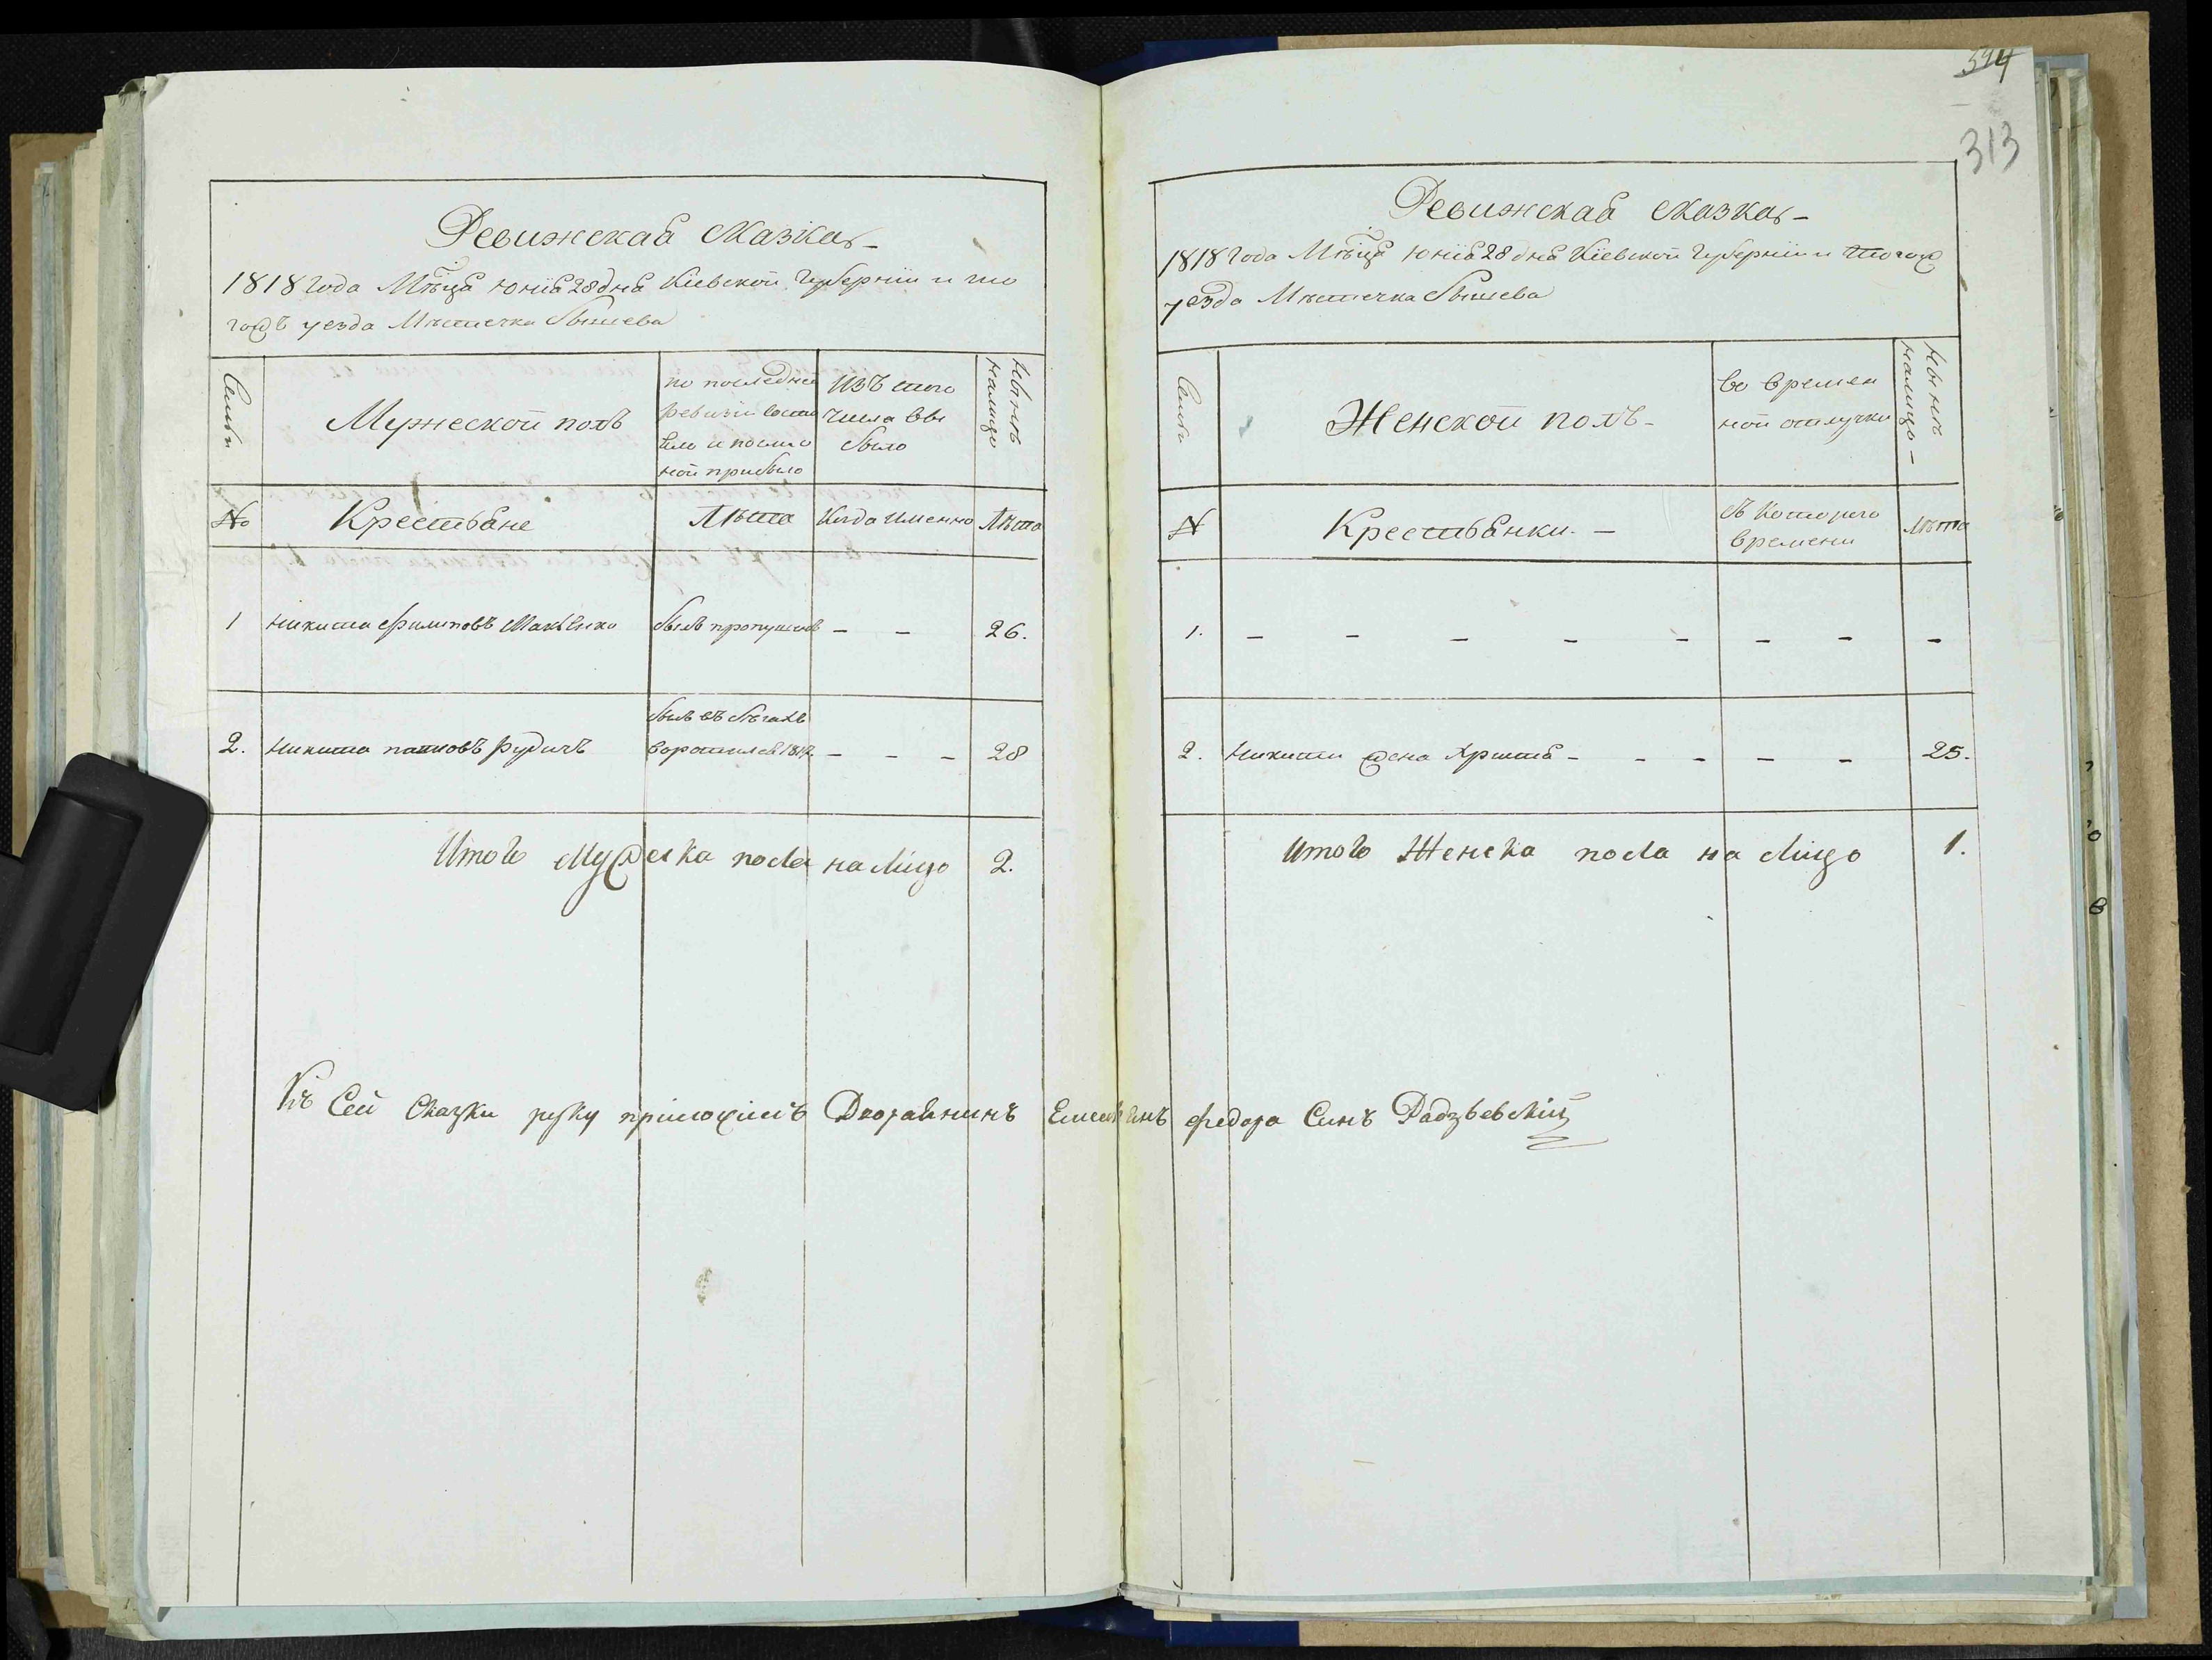 Ревижская сказка -
1818 Года Мѣца Юнія 28 дня Кіевской Губерніи и то
гожъ уезда Мѣстечка Бышева
Семьи
Мужеской полъ
по последней
ревизіи состо
яло и после
ной прибыло
Изъ того
числа выбыло
Нынѣ
налицо
№
Крестьяне
Лѣта
Когда именно
Лѣта
1 Никита Филиповъ былъ пропущенъ - - 26.
былъ въ бѣгахъ
2. Никита Рудичъ воротился 1817 - - - 28
Итого Мужеска пола на лицо 2.
394
313
Ревижская сказка -
1818 Года Мѣца Юнія 28 дня Кіевской Губерніи и тогож
уезда Мѣстечка Бышева
Семьи
Женской полъ -
во времен
ной отлучки
Нынѣ
налицо -
№
Крестьянки. -
съ Которого
времени
лѣта
1. - - - - - - - -
2. Никити жена - - - - - 25.
Итого Женска пола на лицо 1.
Къ Сей Сказки руку приложилъ Дворанинъ Федора Синъ Радзѣевскій